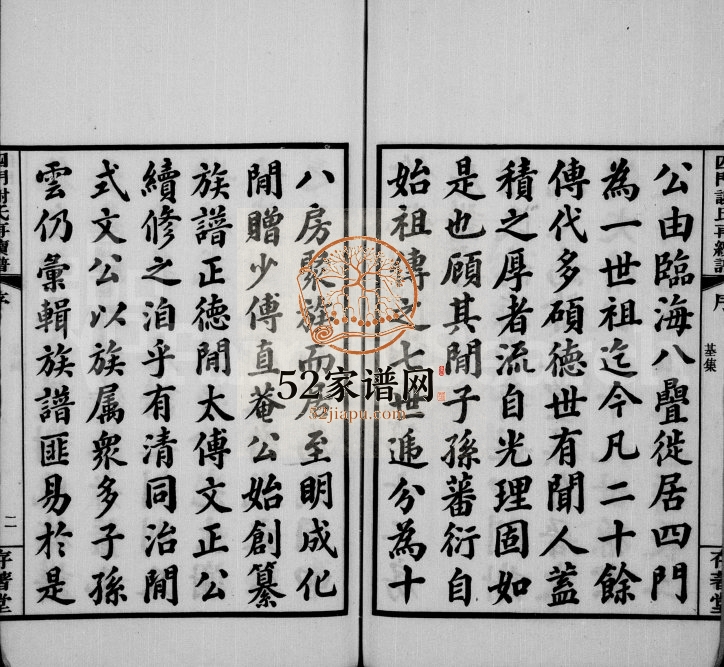 公由臨海八疊徙居四門
為一世祖迄今凡二十餘
傳代多碩德世有聞人蓋
積之厚者流自光理固如
是也顧其閒子孫蕃衍自
始祖傳之七世遞分為十
八房聚族而居至明成化
閒贈少傅直菴公始創纂
族譜正德閒太傅文正公
續修之洎乎有清同治閒
式文公以族属衆多子孫
雲仍彙輯族譜匪易於是
基集
序
二
存著堂
52家谱网
52jiapu.com